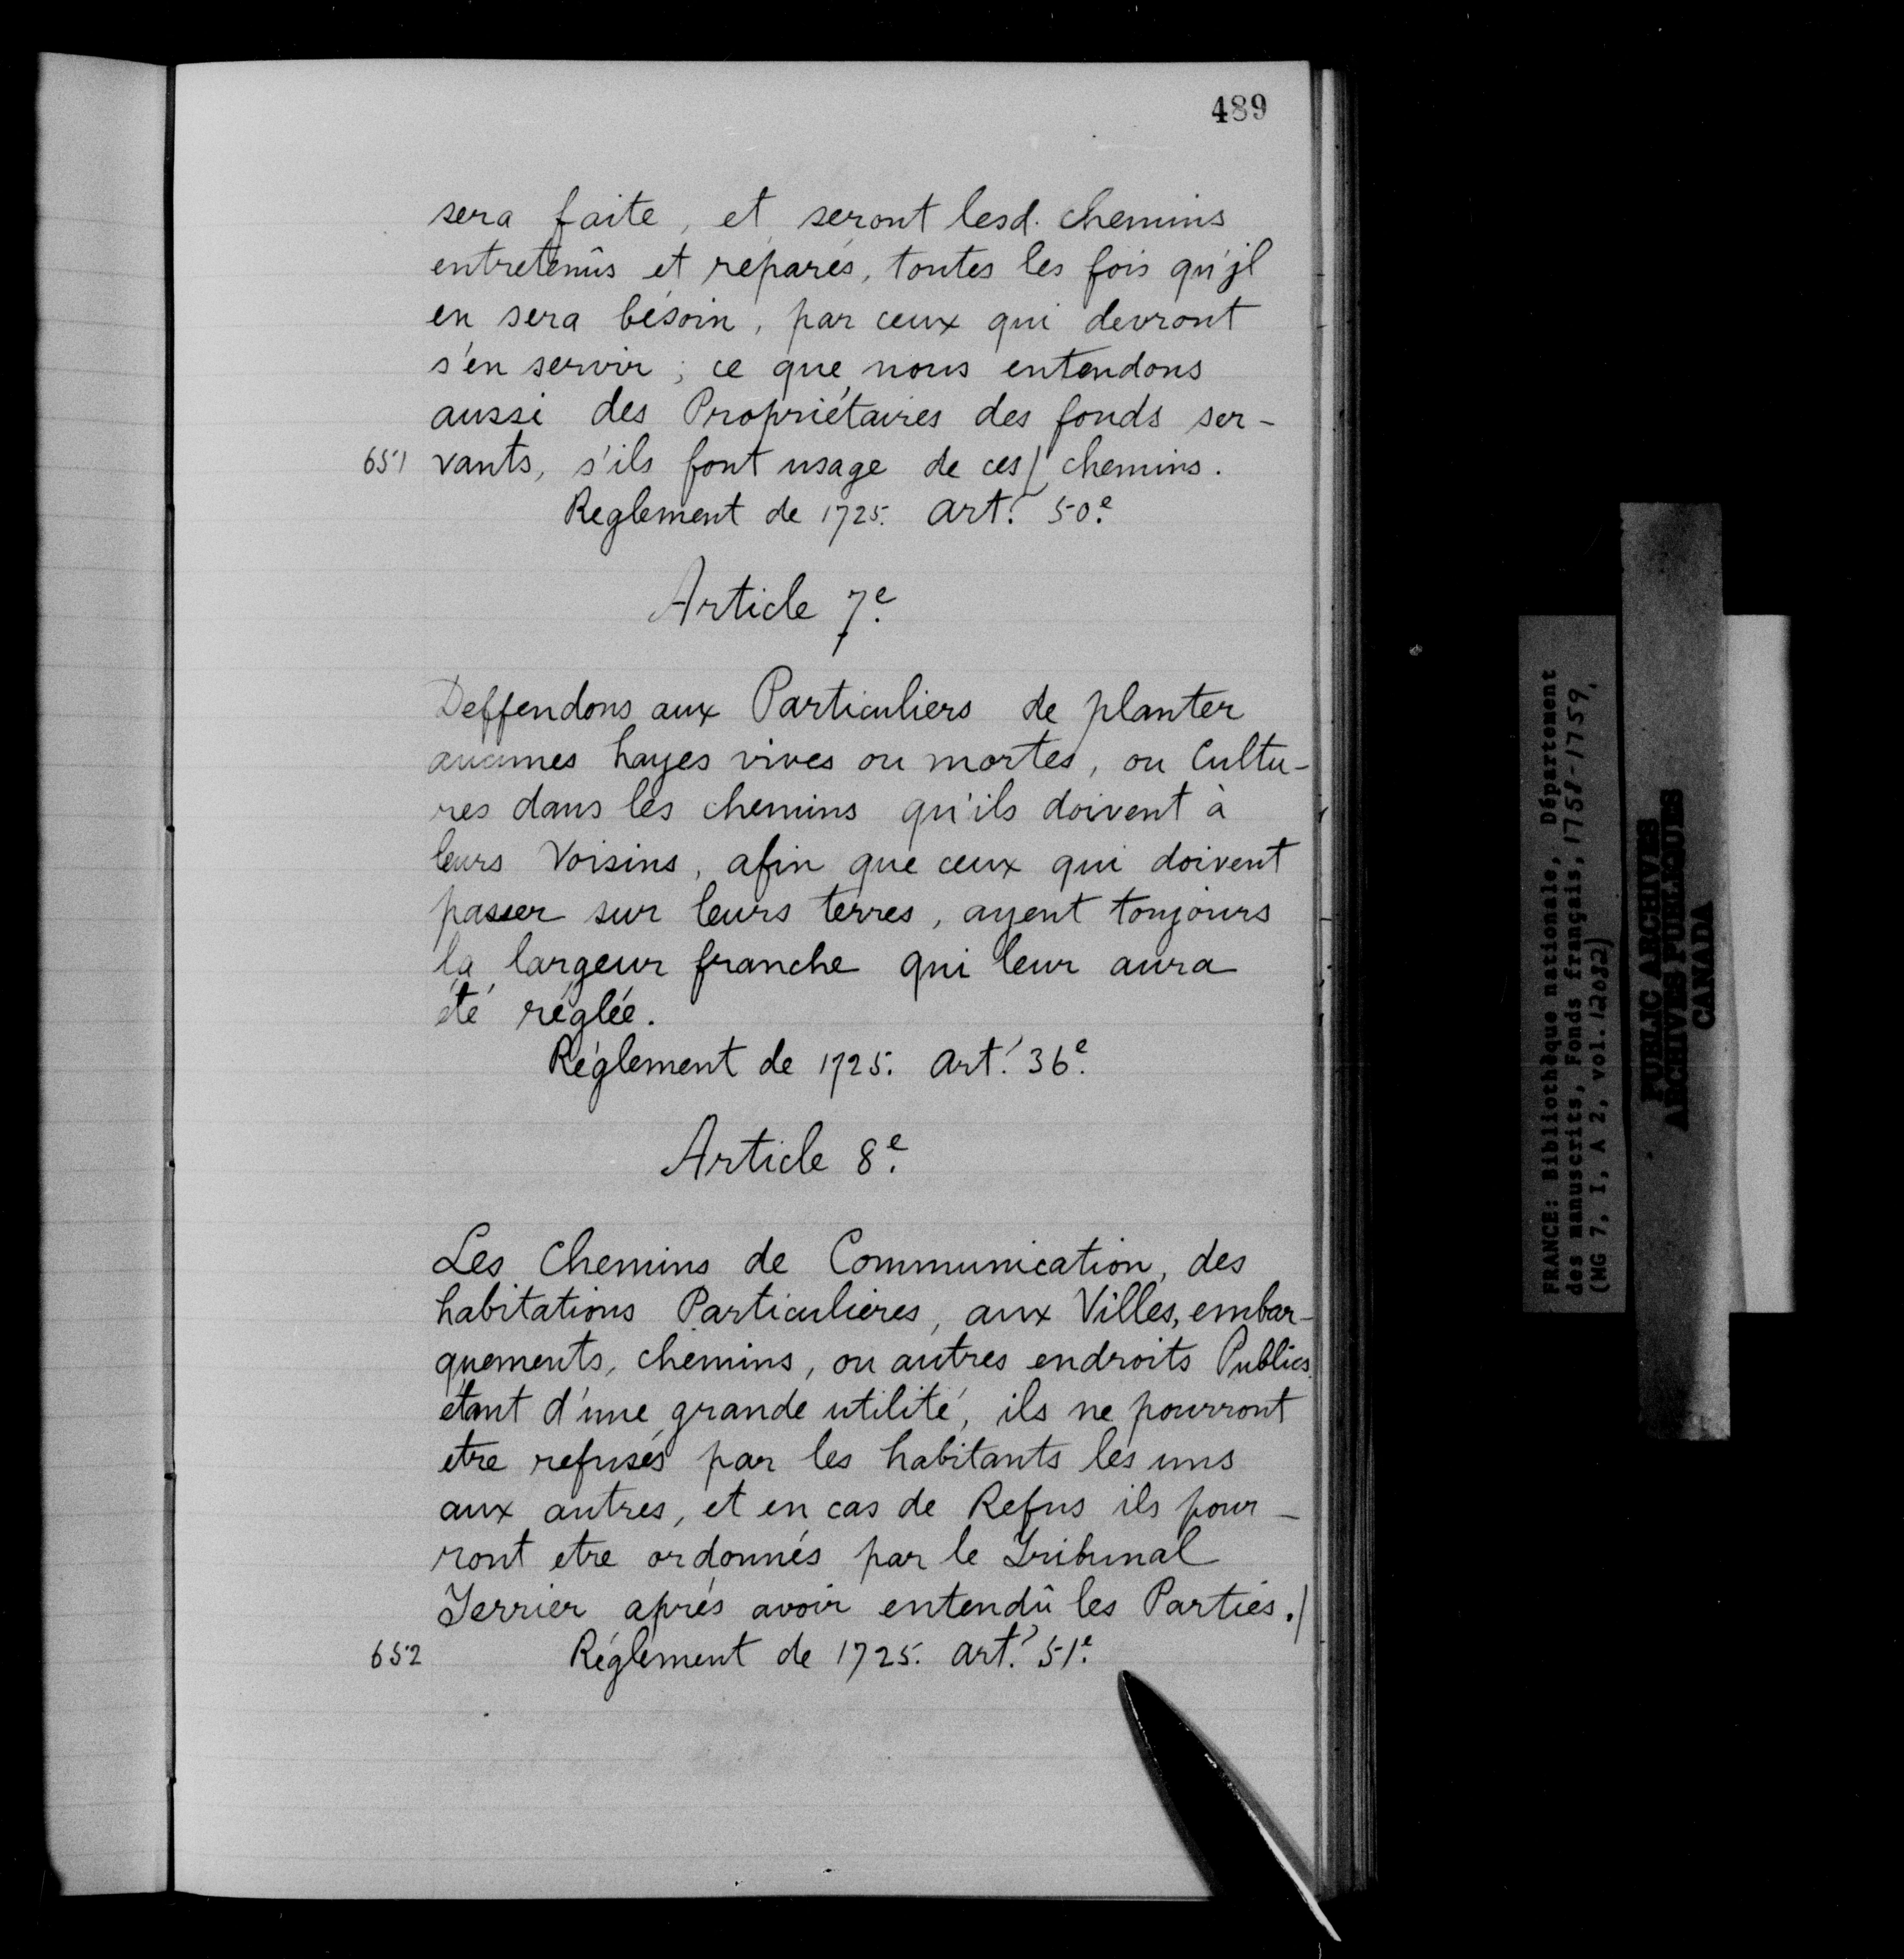 489
sera faite, et seront lesd. chemins
entretenûs et réparés, toutes les fois qu'jl
en sera bésoin, par ceux qui devront
s'en servir; ce que nous entendons
aussi des Propriétaires des fonds ser-
651 vants, s'ils font usage de ces/ chemins.
Reglement de 1725. art. 50e.
Article 7e.
Deffendons aux Particuliers de planter
aucunes hayes vives ou mortes, ou Cultu-
res dans les chemins qu'ils doivent à
leurs Voisins, afin que ceux qui doivent
passer sur leurs terres, ayent toujours
la largeur franche qui leur aura
été réglée.
Réglement de 1725. art. 36e.
Article 8e.
Les Chemins de Communication, des
habitations Particulières, aux Villes, embar-
quements, chemins, ou autres endroits Publics
étant d'une grande utilité, ils ne pourront
etre refusés par les habitants les uns
aux autres, et en cas de Refus ils pour-
ront etre ordonnés par le Tribunal
Terrier aprés avoir entendû les Parties./
652 Réglement de 1725. art. 51e.
FRANCE: Bibliothèque nationale, Département
des manuscrits, Fonds français, 1758-1759,
(MG 7, I, A 2, vol. 12082)
PUBLIC ARCHIVES
ARCHIVES PUBLIQUES
CANADA